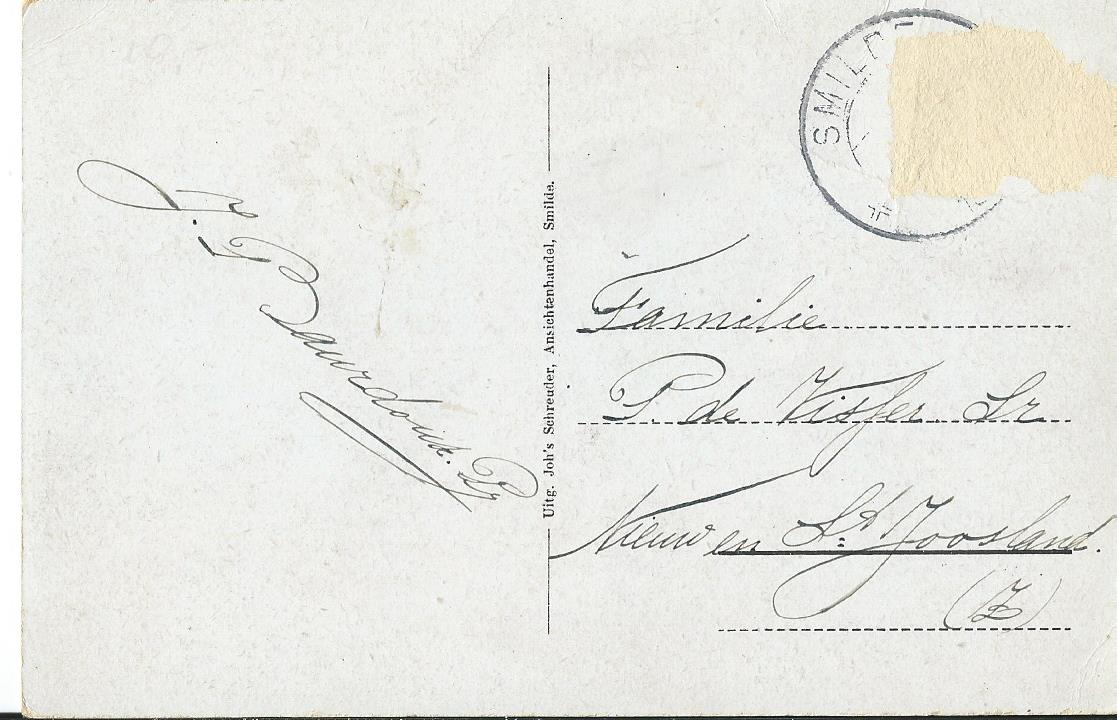 SMILDE
J. P. Baurdoux. Pz
Uitg. Joh's Schreuder, Ansichtenhandel, Smilde.
Familie
P. de Visser Sr
Nieuw en St. Joosland.
(Z)